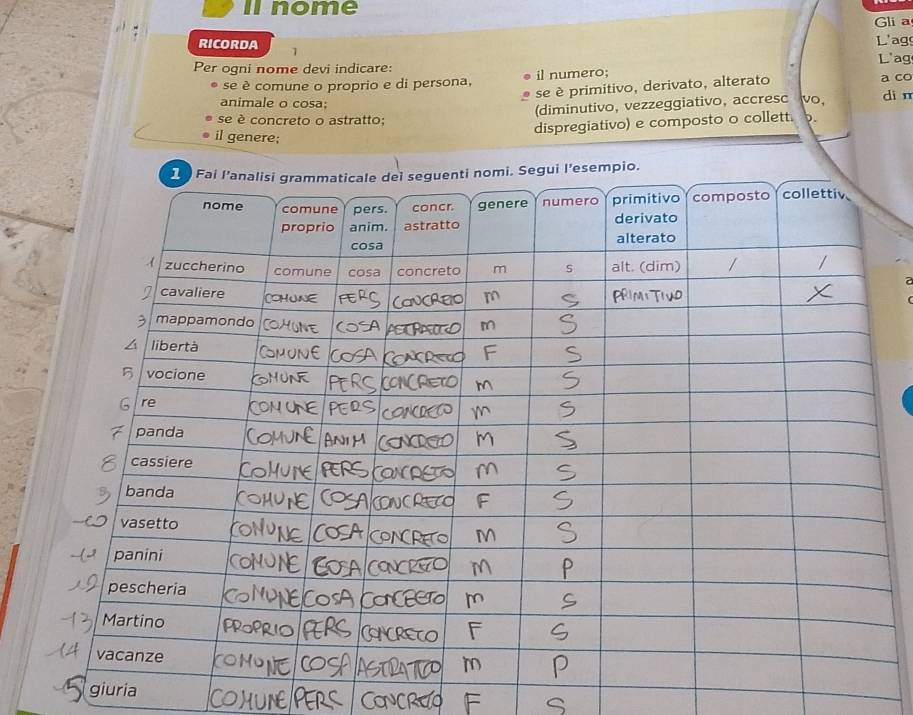 Il nome
RICORDA
Per ogni nome devi indicare:
• se è comune o proprio e di persona,
animale o cosa;
• se è concreto o astratto;
• il genere;
• il numero;
• se è primitivo, derivato, alterato
(diminutivo, vezzeggiativo, accresc vo,
dispregiativo) e composto o collett o.
Gli a
L'ag
L'ag
a co
di m
1 Fai l'analisi grammaticale dei seguenti nomi. Segui l'esempio.
nome comune proprio pers. anim. cosa concr. astratto genere numero primitivo derivato alterato composto collettiv
1 zuccherino comune cosa concreto m s alt. (dim) / /
2 cavaliere COMUNE PERS CONCRETO m S PRIMITIVO X
3 mappamondo COMUNE COSA m S
4 libertà COMUNE COSA CONCRETO F S
5 vocione COMUNE PERS CONCRETO m S
6 re COMUNE PERS CONCRETO m S
7 panda COMUNE ANIM CONCRETO m S
8 cassiere COMUNE PERS CONCRETO m S
9 banda COMUNE COSA CONCRETO F S
10 vasetto COMUNE COSA CONCRETO m S
11 panini COMUNE COSA CONCRETO m P
12 pescheria COMUNE COSA m S
13 Martino PROPRIO PERS CONCRETO F S
14 vacanze COMUNE COSA ASTRATTO m P
15 giuria COMUNE PERS CONCRETO F S